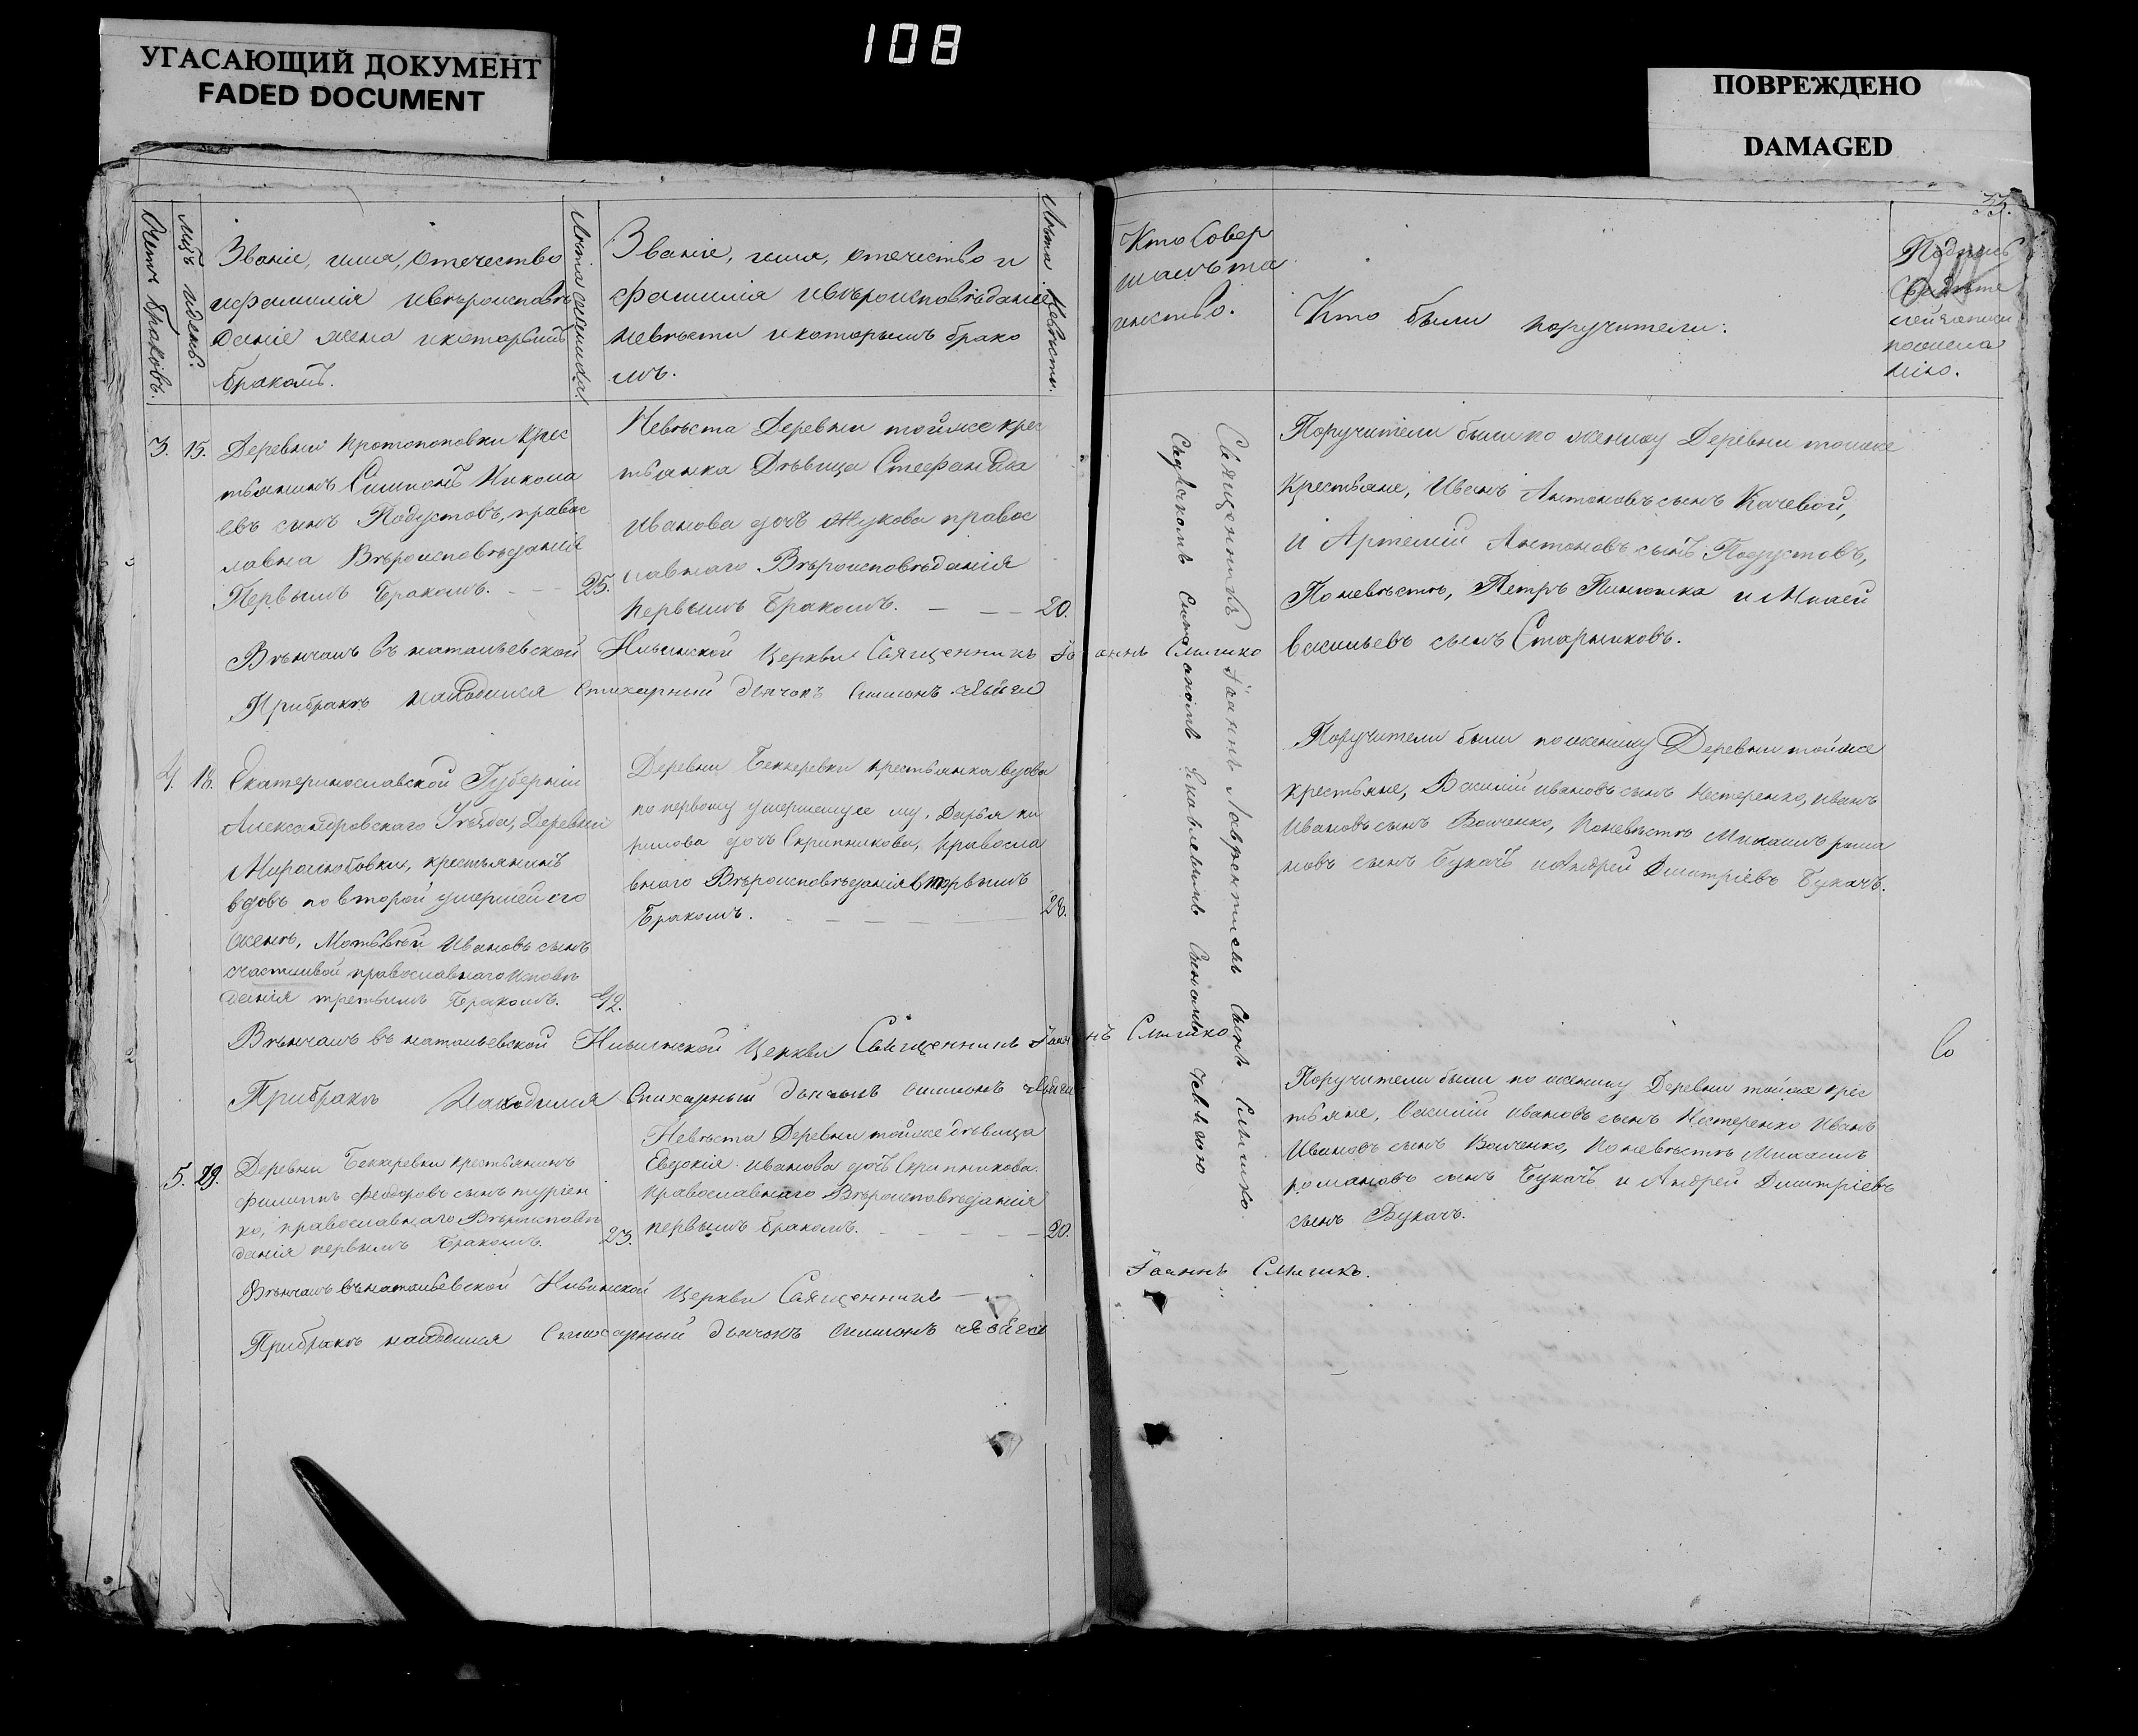 108
УГАСАЮЩИЙ ДОКУМЕНТ
FADED DOCUMENT
ПОВРЕЖДЕНО
DAMAGED
33.
Счетъ браковъ.
Мцъ и день.
Званіе, имя, отечество
и фамилія и вѣроисповѣ
даніе жена и которымъ
бракомъ.
Лѣта жениха.
Званіе, имя, отечество и
фамилія и вѣроисповѣданіе
невѣсти и которымъ брако
мъ.
Лѣта невѣсти.
Кто совер
шалъ та
инство.
Кто были поручители.
Подпись
свидѣте
лей записи
по желанію.
3. 15. Деревни Протопоповки крес
тьянинъ Симионъ Никола
евъ сынъ Подустовъ, правос
лавна вѣроисповѣданія
Первымъ бракомъ. 25.
Невѣста Деревни тойже крес
тьянка дѣвица Стефанида
Иванова дочь Жукова правос
лавнаго вѣроисповѣданія
первымъ бракомъ. 20.
Поручители были по жениху Деревни тойже
крестьяне, Иванъ Антоновъ сынъ Качевой,
и Артемій Антоновъ сынъ Подустовъ,
По невѣстѣ, Петръ и
Васильевъ сынъ Старыковъ.
Вѣнчалъ въ Натальевской Церкви Священникъ Іоаннъ
При бракѣ находился стихарный дьячокъ Симионъ
Священникъ Іоаннъ Лаврентіевъ сынъ
4. 18. Екатеринославской Губерніи
Александровскаго Уѣзда, Деревни
Миролюбовки, крестьянинъ
вдовъ по второй умершей его
женѣ, Матвѣй Ивановъ сынъ
счастливой православнаго исповѣ
данія третьимъ бракомъ. 42.
Деревни Беккеревки крестьянка вдова
по первому умершему ее му, Дарья Ки
рилова дочь Скрипникова, правосла
внаго вѣроисповѣданія вторымъ
бракомъ. 28.
Поручители были по жениху Деревни тойже
крестьяне, Василій Ивановъ сынъ Нестеренко, Иванъ
Ивановъ сынъ Волченко, По невѣстѣ Михаилъ Рома
новъ сынъ Букачъ и Андрей Дмитріевъ Букачъ.
Вѣнчалъ въ Натальевской Церкви Священникъ Іоаннъ
При бракѣ находился стихарный дьячокъ Симионъ
5. 29. Деревни Беккеревки крестьянинъ
Филиппъ Феодоровъ сынъ Турчен
ко, православнаго вѣроисповѣ
данія первымъ бракомъ. 23.
Невѣста Деревни тойже дѣвица
Евдокія Иванова дочь Скрипникова
православнаго вѣроисповѣданія
первымъ бракомъ. 20.
Поручители были по жениху Деревни тойже крес
тьяне, Василій Ивановъ сынъ Нестеренко Иванъ
Ивановъ сынъ Волченко, По невѣстѣ Михаилъ
Романовъ сынъ Букачъ и Андрей Дмитріевъ
сынъ Букачъ.
Вѣнчалъ въ Натальевской Церкви Священникъ Іоаннъ
При бракѣ находился стихарный дьячокъ Симионъ